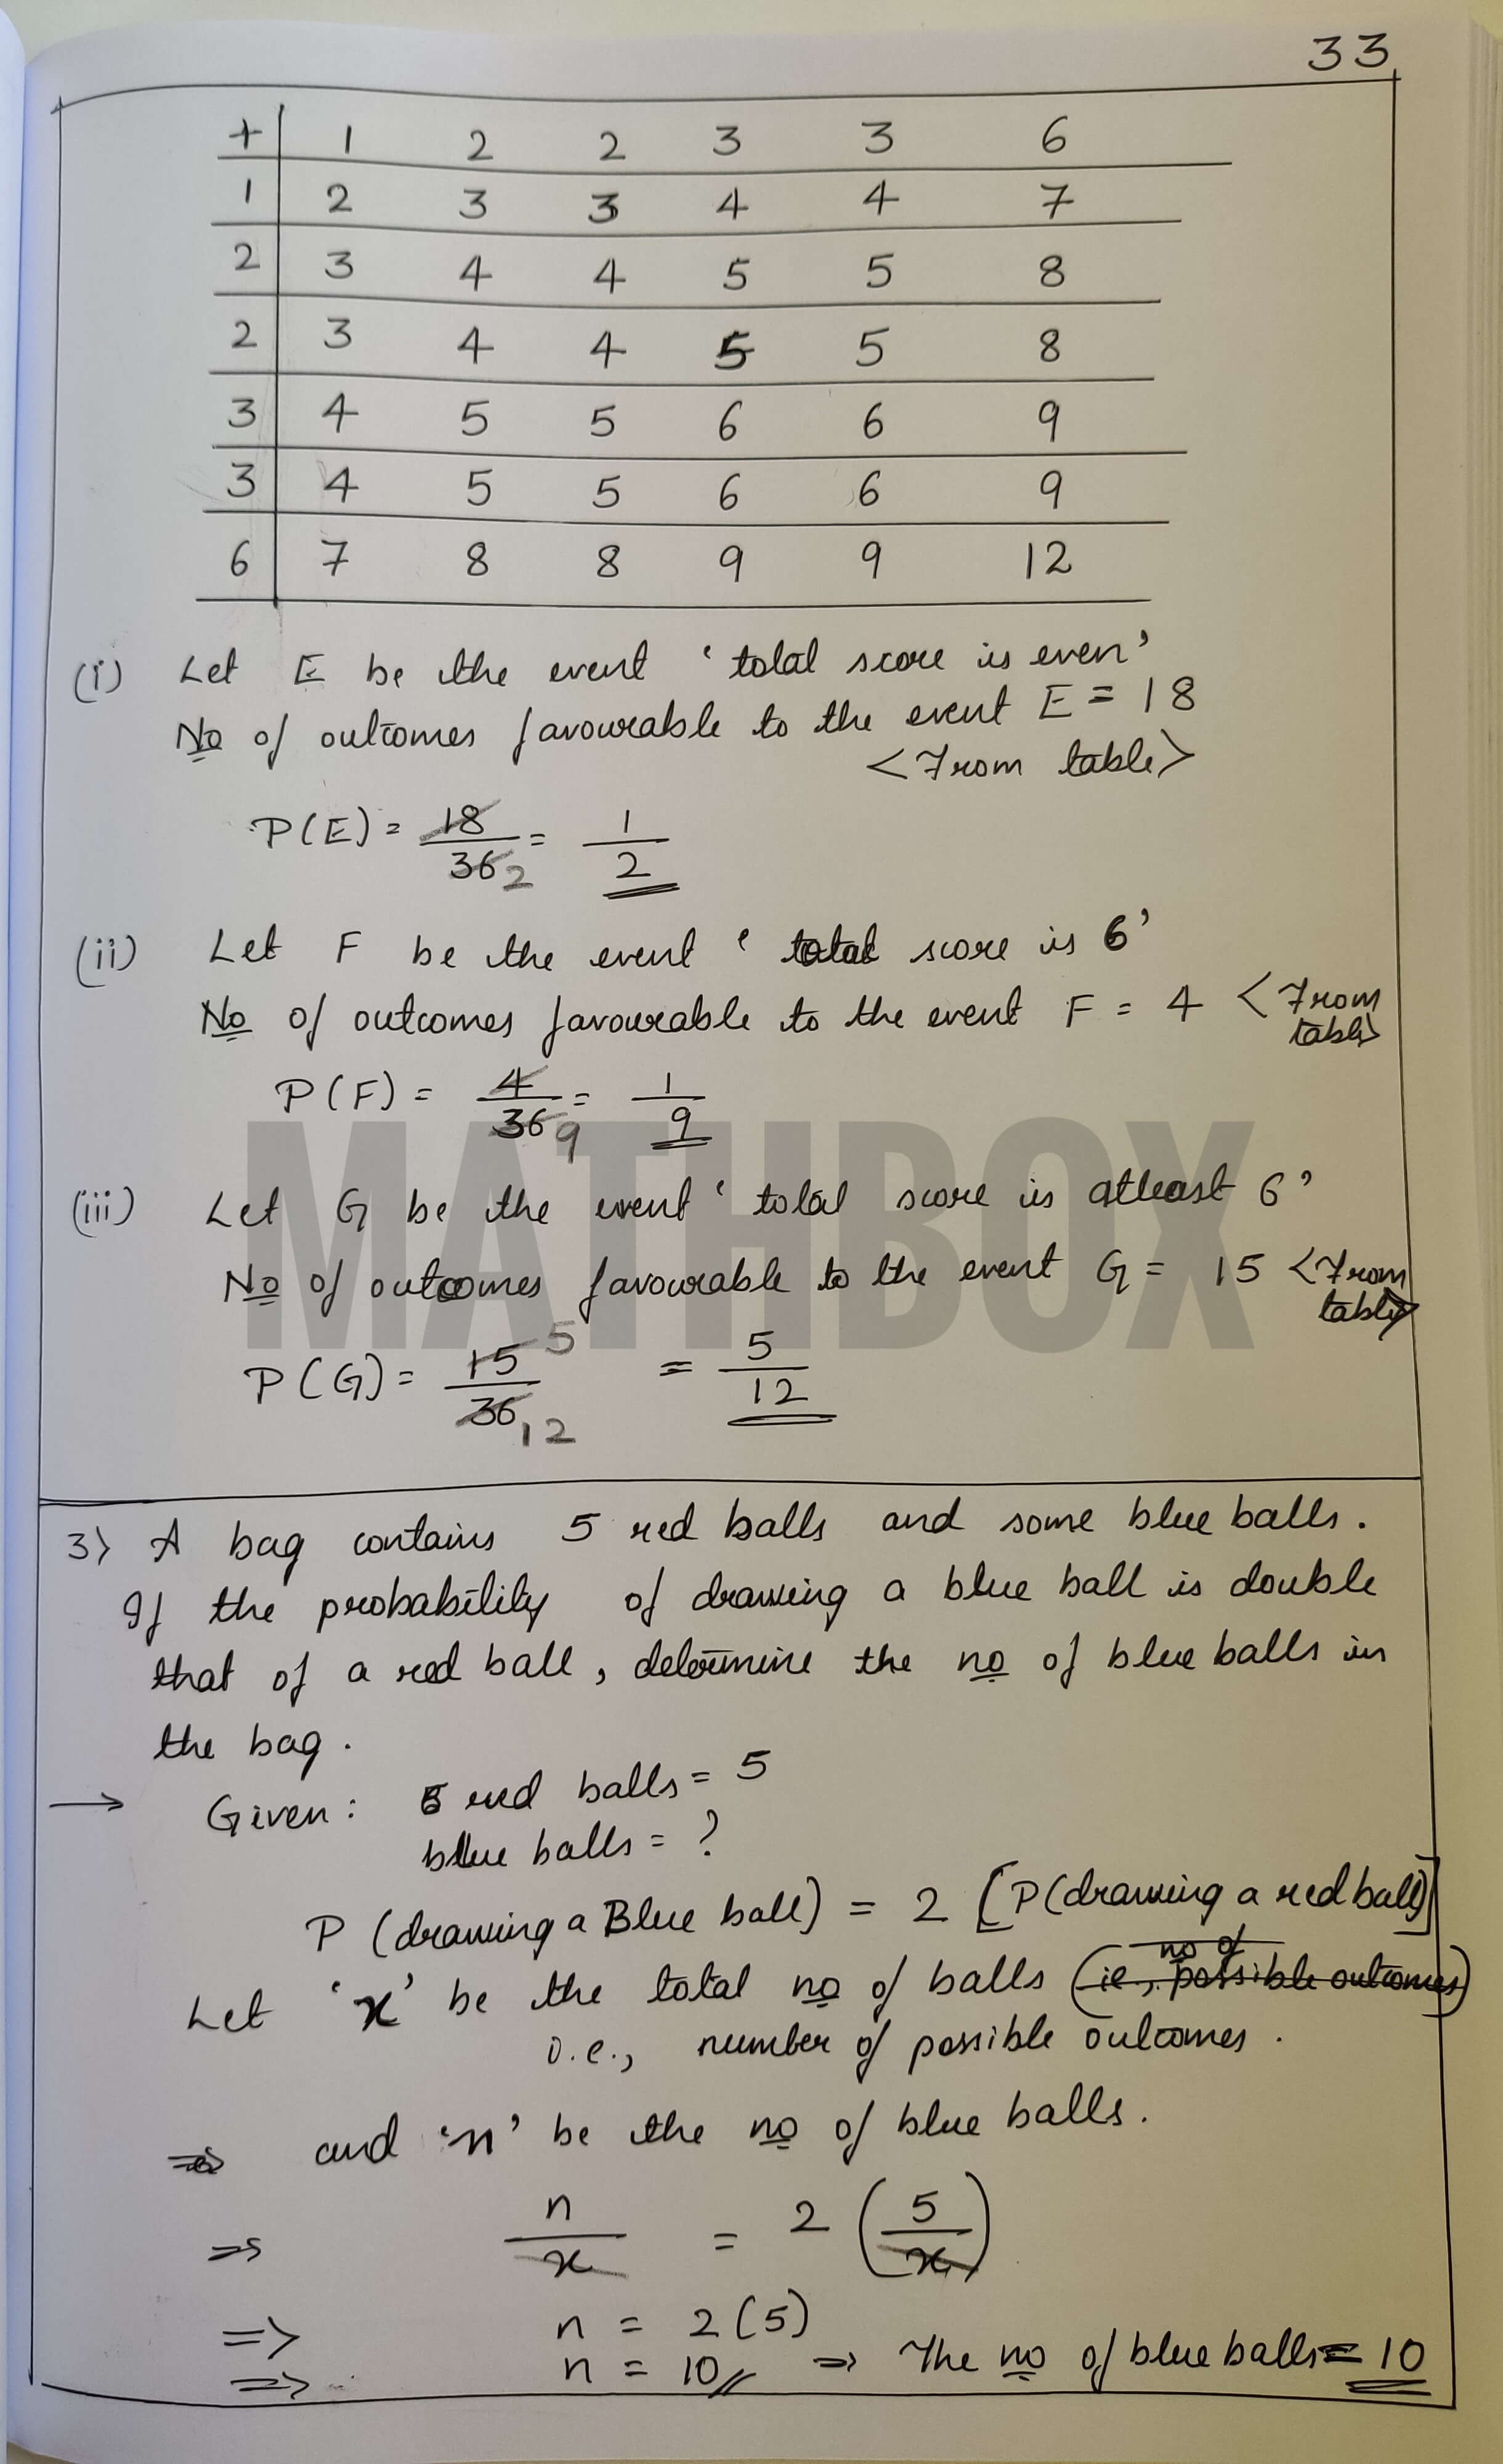 33
+ 1 2 2 3 3 6
1 2 3 3 4 4 7
2 3 4 4 5 5 8
2 3 4 4 5 5 8
3 4 5 5 6 6 9
3 4 5 5 6 6 9
6 7 8 8 9 9 12
(i) Let E be the event ‘total score is even’
No of outcomes favourable to the event E = 18
<From table>
P(E) = 18/36 2 = 1/2
(ii) Let F be the event ‘total score is 6’
No of outcomes favourable to the event F = 4 <From
table>
P(F) = 4/36 9 = 1/9
MATHBOX
(iii) Let G be the event ‘total score is atleast 6’
No of outcomes favourable to the event G = 15 <From
table>
P(G) = 15 5/36 12 = 5/12
3) A bag contains 5 red balls and some blue balls.
If the probability of drawing a blue ball is double
that of a red ball, determine the no of blue balls in
the bag.
→ Given: red balls = 5
blue balls = ?
P (drawing a Blue ball) = 2 [P(drawing a red ball)]
Let ‘x’ be the total no of balls (ie., no of possible outcomes)
i.e., number of possible outcomes.
⇒ and ‘n’ be the no of blue balls.
⇒ n/x = 2 (5/x)
⇒ n = 2(5)
⇒ n = 10 ⇒ The no of blue balls = 10